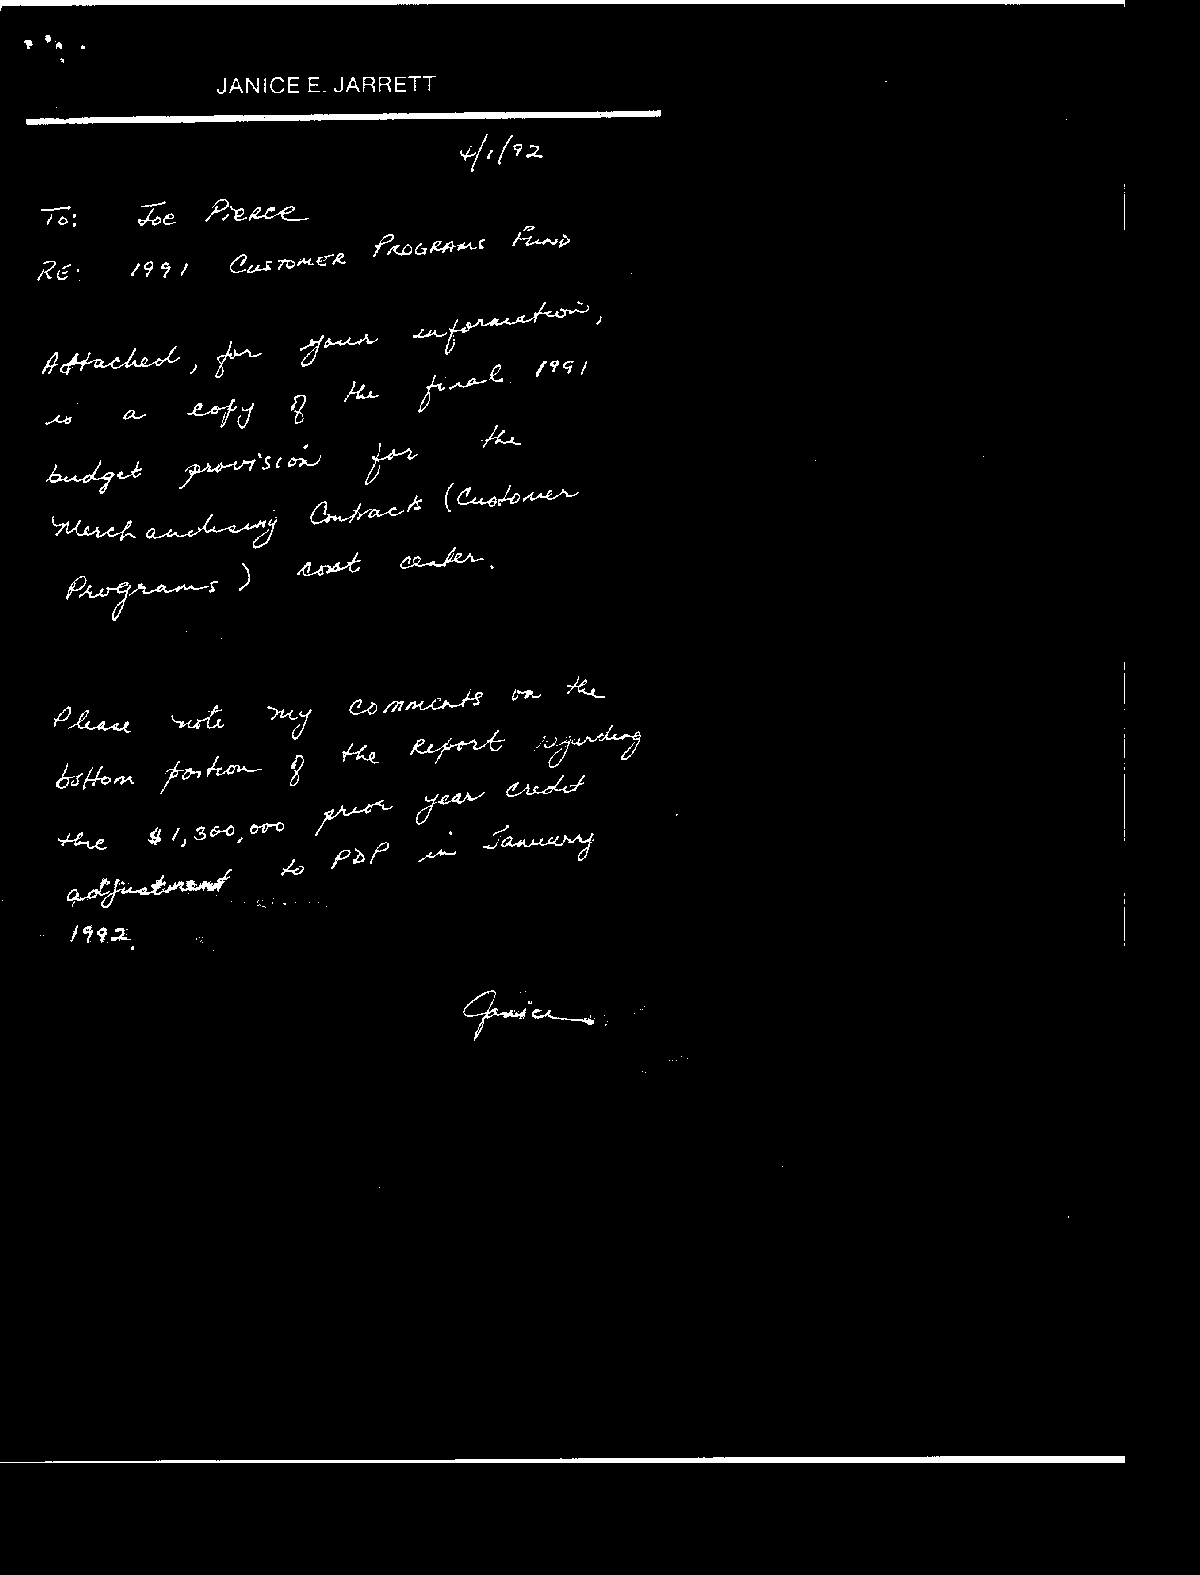 JANICE E. JARRETT
4/1/92
To: Joe Pierce
RE: 1991 Customer Programs Fund
Attached, for your information,
is a copy of the final 1991
budget provision for the
Merchandising Contracts (Customer
Programs) cost center.
Please note my comments on the
bottom portion of the Report regarding
the $1,300,000 prior year credit
adjustment to PDP in January
1992.
Janice